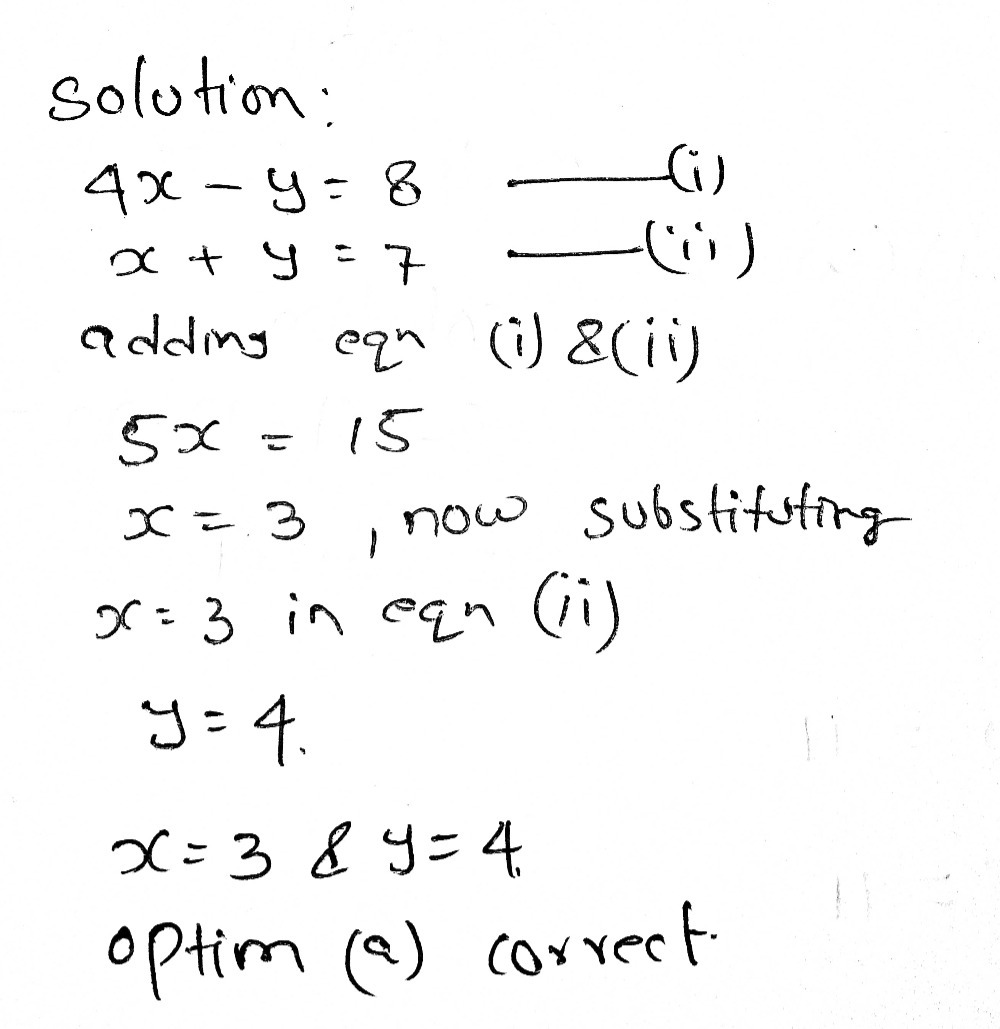 Solution:
4x - y = 8 ———(i)
x + y = 7 ———(ii)
adding eqn (i) & (ii)
5x = 15
x = 3 , now substituting
x = 3 in eqn (ii)
y = 4.
x = 3 & y = 4.
option (a) correct.